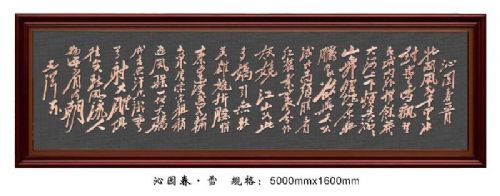 沁园春 雪
北国风光千里冰
封万里雪飘望
长城内外惟余莽莽
大河上下顿失滔滔
山舞银蛇原驰
腊象欲与天公
试比高须晴日看
红装素裹分外
妖娆江山如此
多娇引无数
英雄竞折腰惜
秦皇汉武略输
文采唐宗宋祖稍
逊风骚一代天骄
成吉思汗只识弯
弓射大雕俱
往矣数风流人
物还看今朝
毛泽东
沁园春·雪 规格：5000mmx1600mm